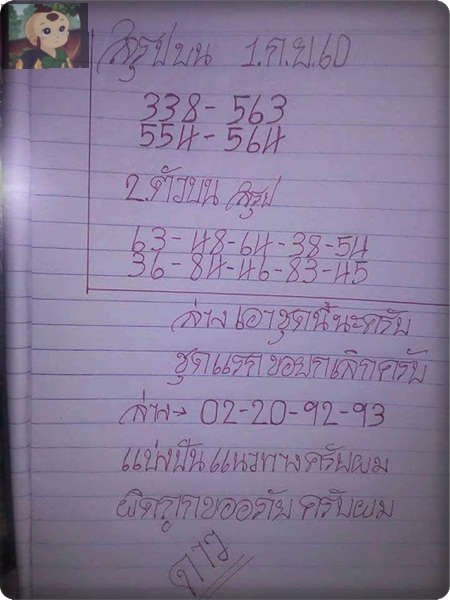 สรุปบน 1.ก.ย.60
338-563
554-564
2.ตัวบน สรุป
63-48-64-38-54
36-84-46-83-45
ล่างเอาชุดนี้นะครับ
ชุดแรกขอยกเลิกครับ
ล่าง→ 02-20-92-93
แบ่งปันแนวทางครับผม
ผิดถูกขออภัยครับผม
ดาว